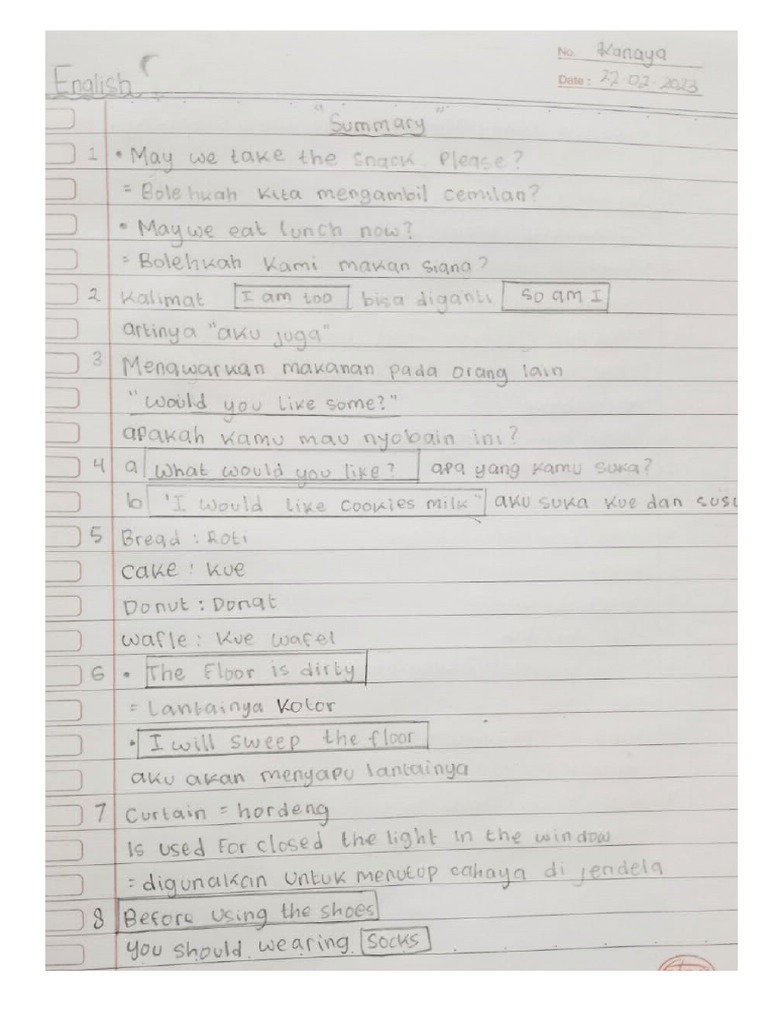 No. Kanaya
English
Date: 22-02-2023
"Summary"
1 • May we take the snack. Please?
= Bolehkah kita mengambil cemilan?
• May we eat lunch now?
= Bolehkah kami makan siang?
2 Kalimat I am too bisa diganti so am I
artinya "aku juga"
3 Menawarkan makanan pada orang lain
"would you like some?"
apakah kamu mau nyobain ini?
4 a What would you like? apa yang kamu suka?
b 'I would like cookies milk" aku suka kue dan susu
5 Bread : Roti
Cake : kue
Donut : Donat
wafle : kue wafel
6 • The Floor is dirty
= Lantainya kotor
• I will sweep the floor
aku akan menyapu lantainya
7 Curtain = hordeng
Is used For closed the light in the window
= digunakan untuk menutup cahaya di jendela
8 Before using the shoes
you should wearing socks